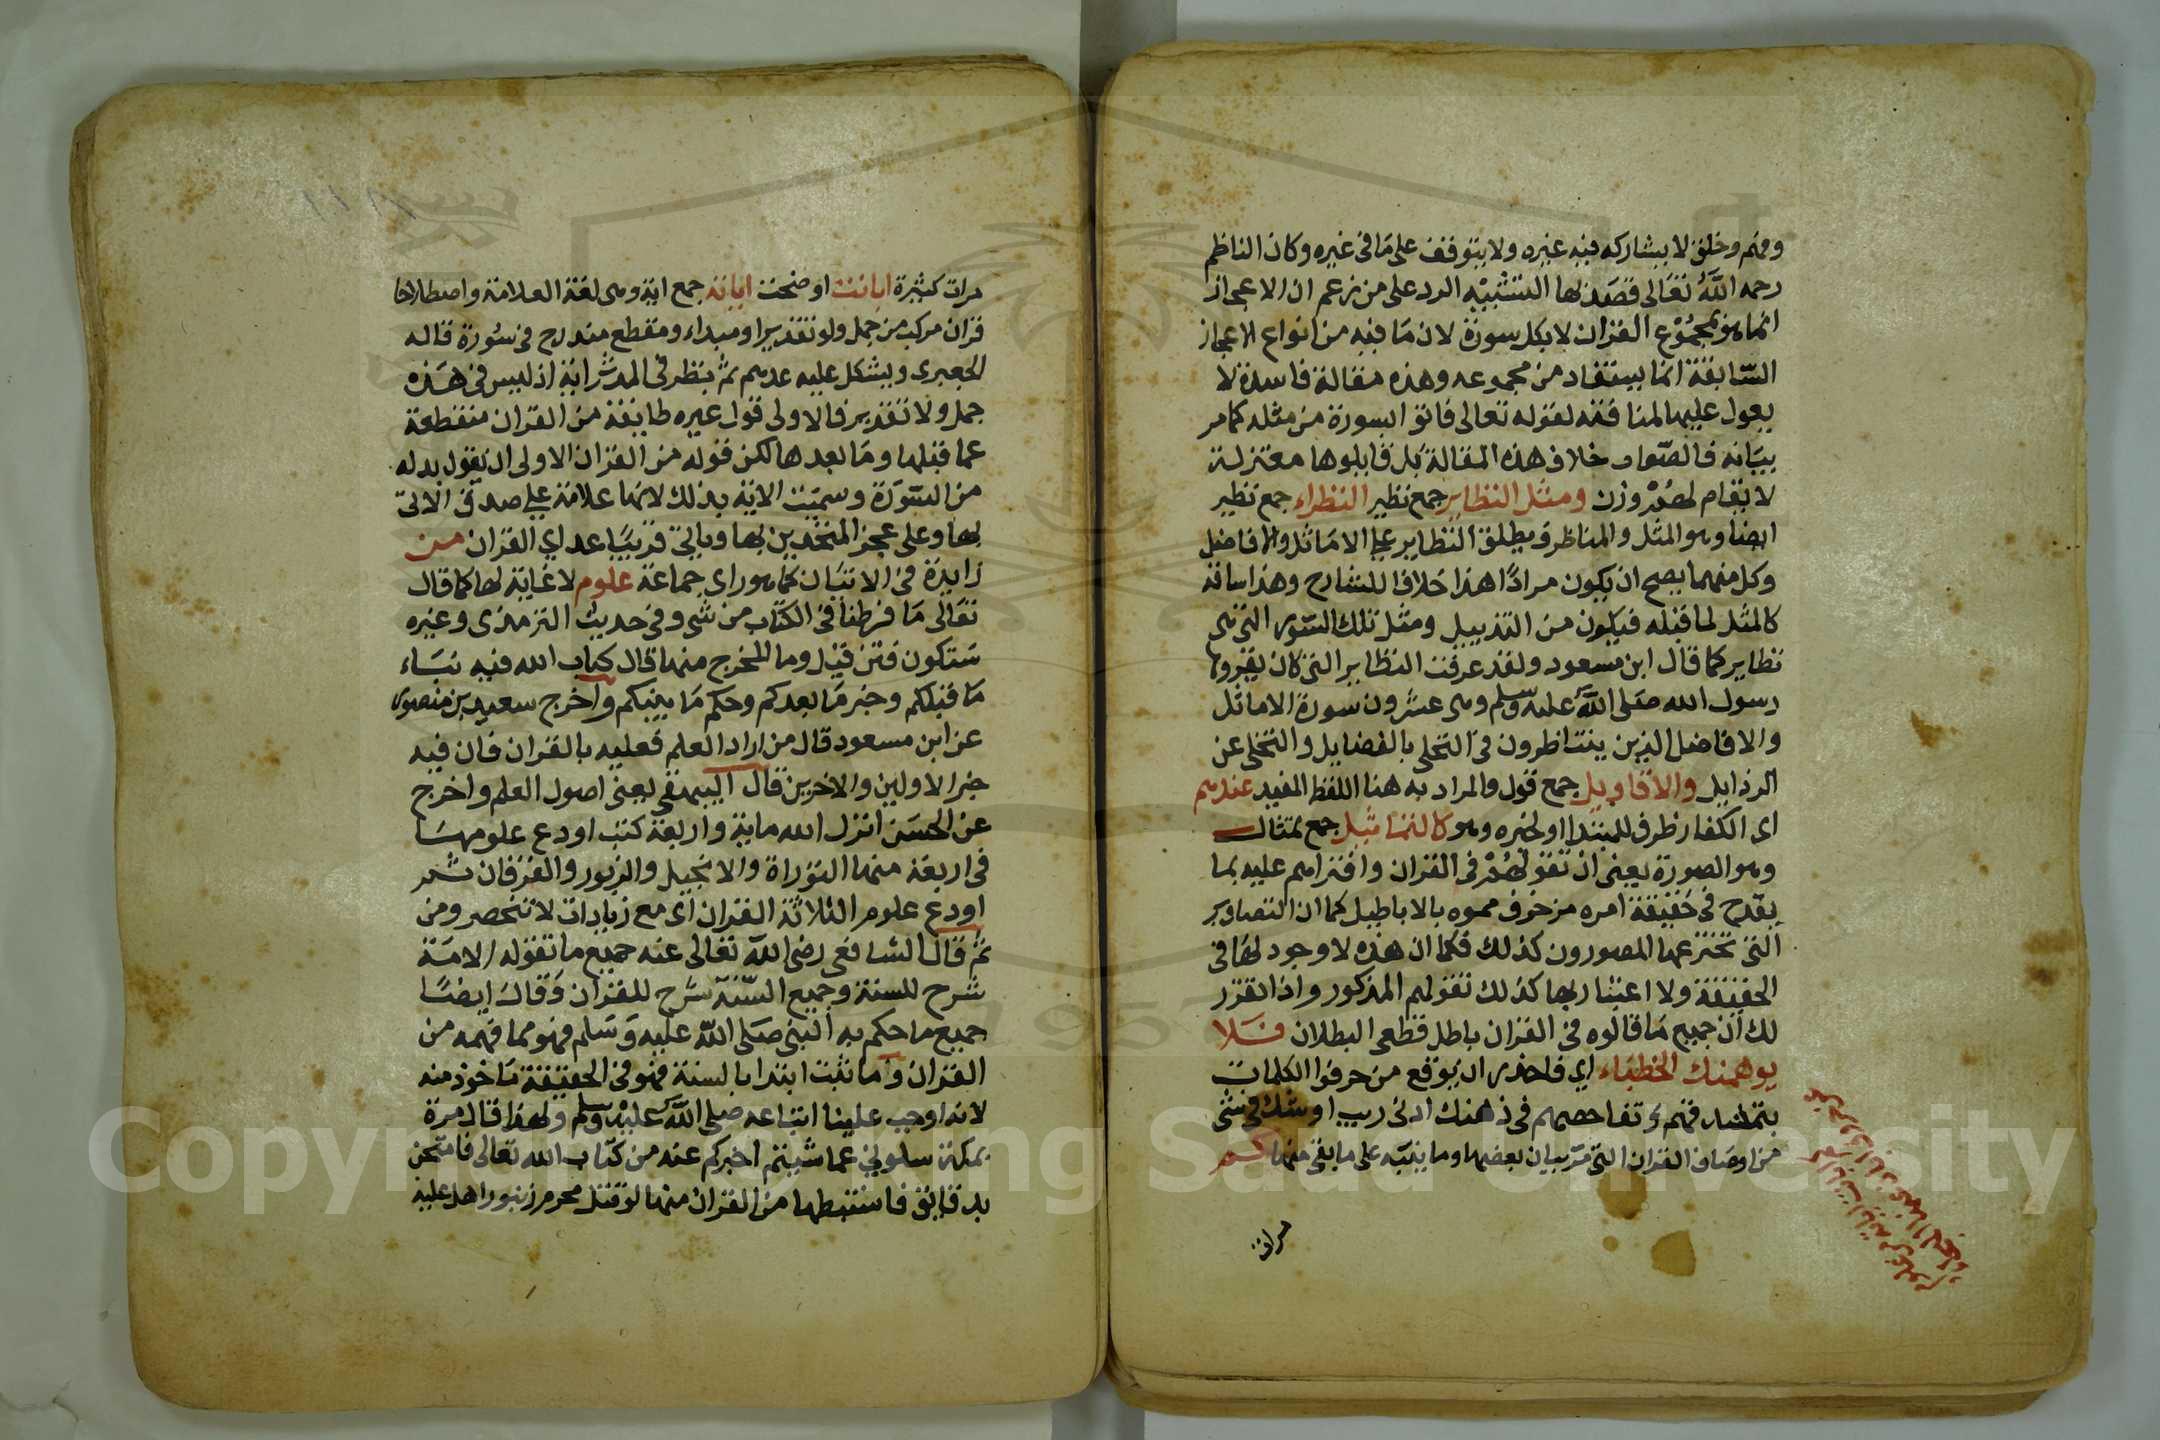 وفهم وخلق لا يشاركه فيه غيره ولا يتوقف على ما في غيره وكان الناظم
رحمه الله تعالى قصد بهذا التشبيه الرد على من زعم ان الاعجاز
انما هو بمجموع القران لا بكل سورة لان ما فيه من انواع الاعجاز
السابقة انما يستفاد من مجموعه وهذه مقالة فاسدة لا
يعول عليها لمنافقة لقوله تعالى فاتوا بسورة من مثله كما مر
بيانه فالصواب خلاف هذه المقالة بل قايلوها معتزلة
لا يقام لهم وزن ومثل النظاير جمع نظير النظراء جمع نظير
ايضا وهو المثل والمناظر ويطلق النظاير على الاماثل والافاضل
وكل منهما يصح ان يكون مرادا هذا خلافا للشارح وهذا ساقه
كالمثل لما قبله فيكون من التذييل ومثل تلك السور التي هي
نظاير كما قال ابن مسعود ولقد عرفت النظاير التي كان يقروها
رسول الله صلى الله عليه وسلم وهي عشرون سورة الاماثل
والافاضل الذين يتناظرون في التحلي بالفضايل والتخلي عن
الرذايل والاقاويل جمع قول والمراد به هنا اللفظ المفيد عندهم
اي الكفار ظرف للمبتدا او لخبره وهو كالتماثيل جمع تمثال
وهو الصورة يعني ان تقولهم في القران وافتراهم عليه بما
يقدح في حقيقة امره مزخرف مموه بالاباطيل كما ان التصاوير
التي تخترعها المصورون كذلك فكما ان هذه لا وجود لها في
الحقيقة ولا اعتبار بها كذلك تقولهم المذكور واذا تقرر
لك ان جميع ما قالوه في القران باطل قطعي البطلان فلا
يوهمنك الخطباء اي فاحذر ان يوقع من حرفوا الكلمات
بتمشدقهم وتفاصحهم في ذهنك ادنى ريب او شك في شي
من اوصاف القران التي مر بيان بعضها وما ينبه على ما بقي منها كم
مرات
مرات كثيرة ابانت اوضحت اياته جمع اية وهي لغة العلامة واصطلاحا
قران مركب من جمل ولو تقديرا ومبداء ومقطع مندرج في سورة قاله
الجعبري ويشكل عليه عدهم ثم نظر في المدثر اية اذ ليس في هذه
جمل ولا تقدير فالاولى قول غيره طايفة من القران منقطعة
عما قبلها وما بعدها لكن قوله من القران الاولى ان يقول بدله
من السورة وسميت الاية بذلك لانها علامة على صدق الاتي
بها وعلى عجز المتحدين بها وياتي قريبا عد اي القران من
زايدة في الاثبات كما هو راي جماعة علوم لا غاية لها كما قال
تعالى ما فرطنا في الكتاب من شي وفي حديث الترمذي وغيره
ستكون فتن قيل وما المخرج منها قال كتاب الله فيه نباء
ما قبلكم وخبر ما بعدكم وحكم ما بينكم واخرج سعيد بن منصور
عن ابن مسعود قال من اراد العلم فعليه بالقران فان فيه
خبر الاولين والاخرين قال البيهقي يعني اصول العلم واخرج
عن الحسن انزل الله ماية واربعة كتب اودع علومها
في اربعة منها التوراة والانجيل والزبور والفرقان ثم
اودع علوم الثلاثة القران اي مع زيادات لا تنحصر ومن
ثم قال الشافعي رضي الله تعالى عنه جميع ما تقوله الامة
شرح للسنة وجميع السنة شرح للقران وقال ايضا
جميع ما حكم به النبي صلى الله عليه وسلم فهو مما فهمه من
القران وما ثبت ابتدا بالسنة فهو في الحقيقة ماخوذ منه
لانه اوجب علينا اتباعه صلى الله عليه وسلم ولهذا قال مرة
بمكة سلوني عما شيتم اخبركم عنه من كتاب الله تعالى فامتحن
بدقايق فاستنبطها من القران منها لو قتل محرم زنبورا هل عليه